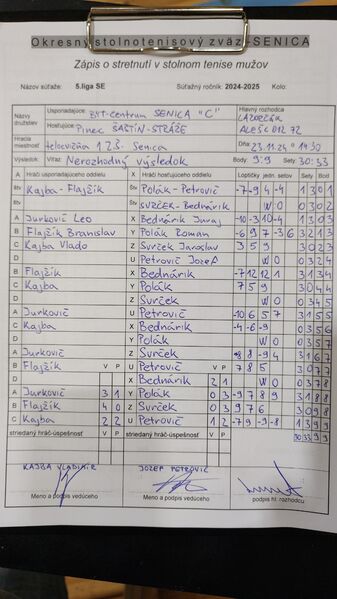 Okresný stolnotenisový zväz SENICA
Zápis o stretnutí v stolnom tenise mužov
Názov súťaže: 5.liga SE Súťažný ročník: 2024-2025 Kolo:
Názov družstiev Usporiadajúce: BYT-centrum SENICA "C" Hlavný rozhodca
Hosťujúce: Pinec ŠAŠTÍN-STRÁŽE
Hracia miestnosť telocvičňa 1 ZŠ. Senica Dňa: 23.11.24 o 14 30
Výsledok: Víťaz: Nerozhodný výsledok Body: 9:9 Sety: 30:33
A Hráči usporiadajúceho oddielu X Hráči hosťujúceho oddielu Loptičky jedn. setov Sety Bod
štv Kajba-Flajžík štv Polák-Petrovič -7 -9 4 -4 1 3 0 1
štv štv SVRČEK-Bednárik WO 0 3 0 2
A Jurkovič Leo X Bednárik Juraj -10 -3 10 -4 1 3 0 3
B Flajžík Branislav Y Polák Roman -6 9 7 -3 6 3 2 1 3
C Kajba Vlado Z Svrček Jaroslav 3 5 9 3 0 2 3
D U Petrovič Jozef WO 0 3 2 4
B Flajžík X Bednárik -7 12 12 1 3 1 3 4
C Kajba Y Polák 7 5 9 3 0 4 4
D Z Svrček WO 0 3 4 5
A Jurkovič U Petrovič -10 6 5 7 3 1 5 5
C Kajba X Bednárik -4 -6 -9 0 3 5 6
D Y Polák WO 0 3 5 7
A Jurkovič Z Svrček 8 -9 4 3 1 6 7
B Flajžík V P U Petrovič 7 8 5 3 0 7 7
D X Bednárik 2 1 WO 0 3 7 8
A Jurkovič 3 1 Y Polák 0 3 -9 7 8 9 3 1 8 8
B Flajžík 4 0 Z Svrček 0 3 9 7 6 3 0 9 8
C Kajba 2 2 U Petrovič 1 2 -7 9 -9 -8 1 3 9 9
striedaný hráč-úspešnosť V P striedaný hráč-úspešnosť V P 30 33 9 9
KAJBA VLADIMÍR JOZEF PETROVIČ
Meno a podpis vedúceho Meno a podpis vedúceho podpis hl. rozhodcu